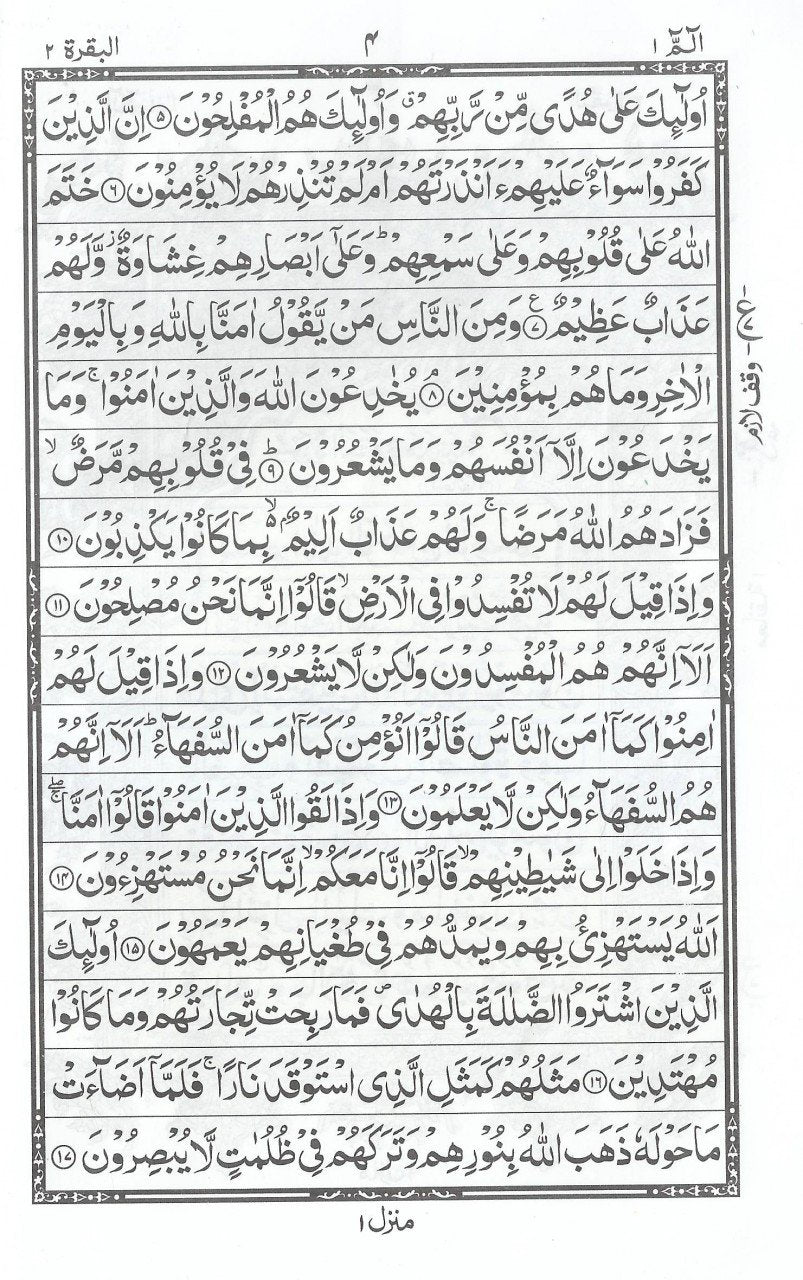 الٓمّٓ ١
۴
البقرة ٢
اُولٰٓئِكَ عَلٰى هُدًى مِّنْ رَّبِّهِمْ ۗ وَاُولٰٓئِكَ هُمُ الْمُفْلِحُوْنَ ۝۵ اِنَّ الَّذِيْنَ
كَفَرُوْا سَوَآءٌ عَلَيْهِمْ ءَاَنْذَرْتَهُمْ اَمْ لَمْ تُنْذِرْهُمْ لَا يُؤْمِنُوْنَ ۝۶ خَتَمَ
اللّٰهُ عَلٰى قُلُوْبِهِمْ وَعَلٰى سَمْعِهِمْ ؕ وَعَلٰٓى اَبْصَارِهِمْ غِشَاوَةٌ ؗ وَّلَهُمْ
عَذَابٌ عَظِيْمٌ ۝۷ ع وَمِنَ النَّاسِ مَنْ يَّقُوْلُ اٰمَنَّا بِاللّٰهِ وَبِالْيَوْمِ
الْاٰخِرِ وَمَا هُمْ بِمُؤْمِنِيْنَ ۝۸ۘ يُخٰدِعُوْنَ اللّٰهَ وَالَّذِيْنَ اٰمَنُوْا ۚ وَمَا
يَخْدَعُوْنَ اِلَّاۤ اَنْفُسَهُمْ وَمَا يَشْعُرُوْنَ ۝۹ؕ فِيْ قُلُوْبِهِمْ مَّرَضٌ ۙ
فَزَادَهُمُ اللّٰهُ مَرَضًا ۚ وَلَهُمْ عَذَابٌ اَلِيْمٌۢ ۙ۬ بِمَا كَانُوْا يَكْذِبُوْنَ ۝۱۰
وَاِذَا قِيْلَ لَهُمْ لَا تُفْسِدُوْا فِى الْاَرْضِ ۙ قَالُوْۤا اِنَّمَا نَحْنُ مُصْلِحُوْنَ ۝۱۱
اَلَاۤ اِنَّهُمْ هُمُ الْمُفْسِدُوْنَ وَلٰكِنْ لَّا يَشْعُرُوْنَ ۝۱۲ وَاِذَا قِيْلَ لَهُمْ
اٰمِنُوْا كَمَاۤ اٰمَنَ النَّاسُ قَالُوْۤا اَنُؤْمِنُ كَمَاۤ اٰمَنَ السُّفَهَآءُ ؕ اَلَاۤ اِنَّهُمْ
هُمُ السُّفَهَآءُ وَلٰكِنْ لَّا يَعْلَمُوْنَ ۝۱۳ وَاِذَا لَقُوا الَّذِيْنَ اٰمَنُوْا قَالُوْۤا اٰمَنَّا ۖۚ
وَاِذَا خَلَوْا اِلٰى شَيٰطِيْنِهِمْ ۙ قَالُوْۤا اِنَّا مَعَكُمْ ۙ اِنَّمَا نَحْنُ مُسْتَهْزِءُوْنَ ۝۱۴
اَللّٰهُ يَسْتَهْزِئُ بِهِمْ وَيَمُدُّهُمْ فِيْ طُغْيَانِهِمْ يَعْمَهُوْنَ ۝۱۵ اُولٰٓئِكَ
الَّذِيْنَ اشْتَرَوُا الضَّلٰلَةَ بِالْهُدٰى ۪ فَمَا رَبِحَتْ تِّجَارَتُهُمْ وَمَا كَانُوْا
مُهْتَدِيْنَ ۝۱۶ مَثَلُهُمْ كَمَثَلِ الَّذِى اسْتَوْقَدَ نَارًا ۚ فَلَمَّاۤ اَضَآءَتْ
مَا حَوْلَهٗ ذَهَبَ اللّٰهُ بِنُوْرِهِمْ وَتَرَكَهُمْ فِيْ ظُلُمٰتٍ لَّا يُبْصِرُوْنَ ۝۱۷
وقف لازم
منزل ١